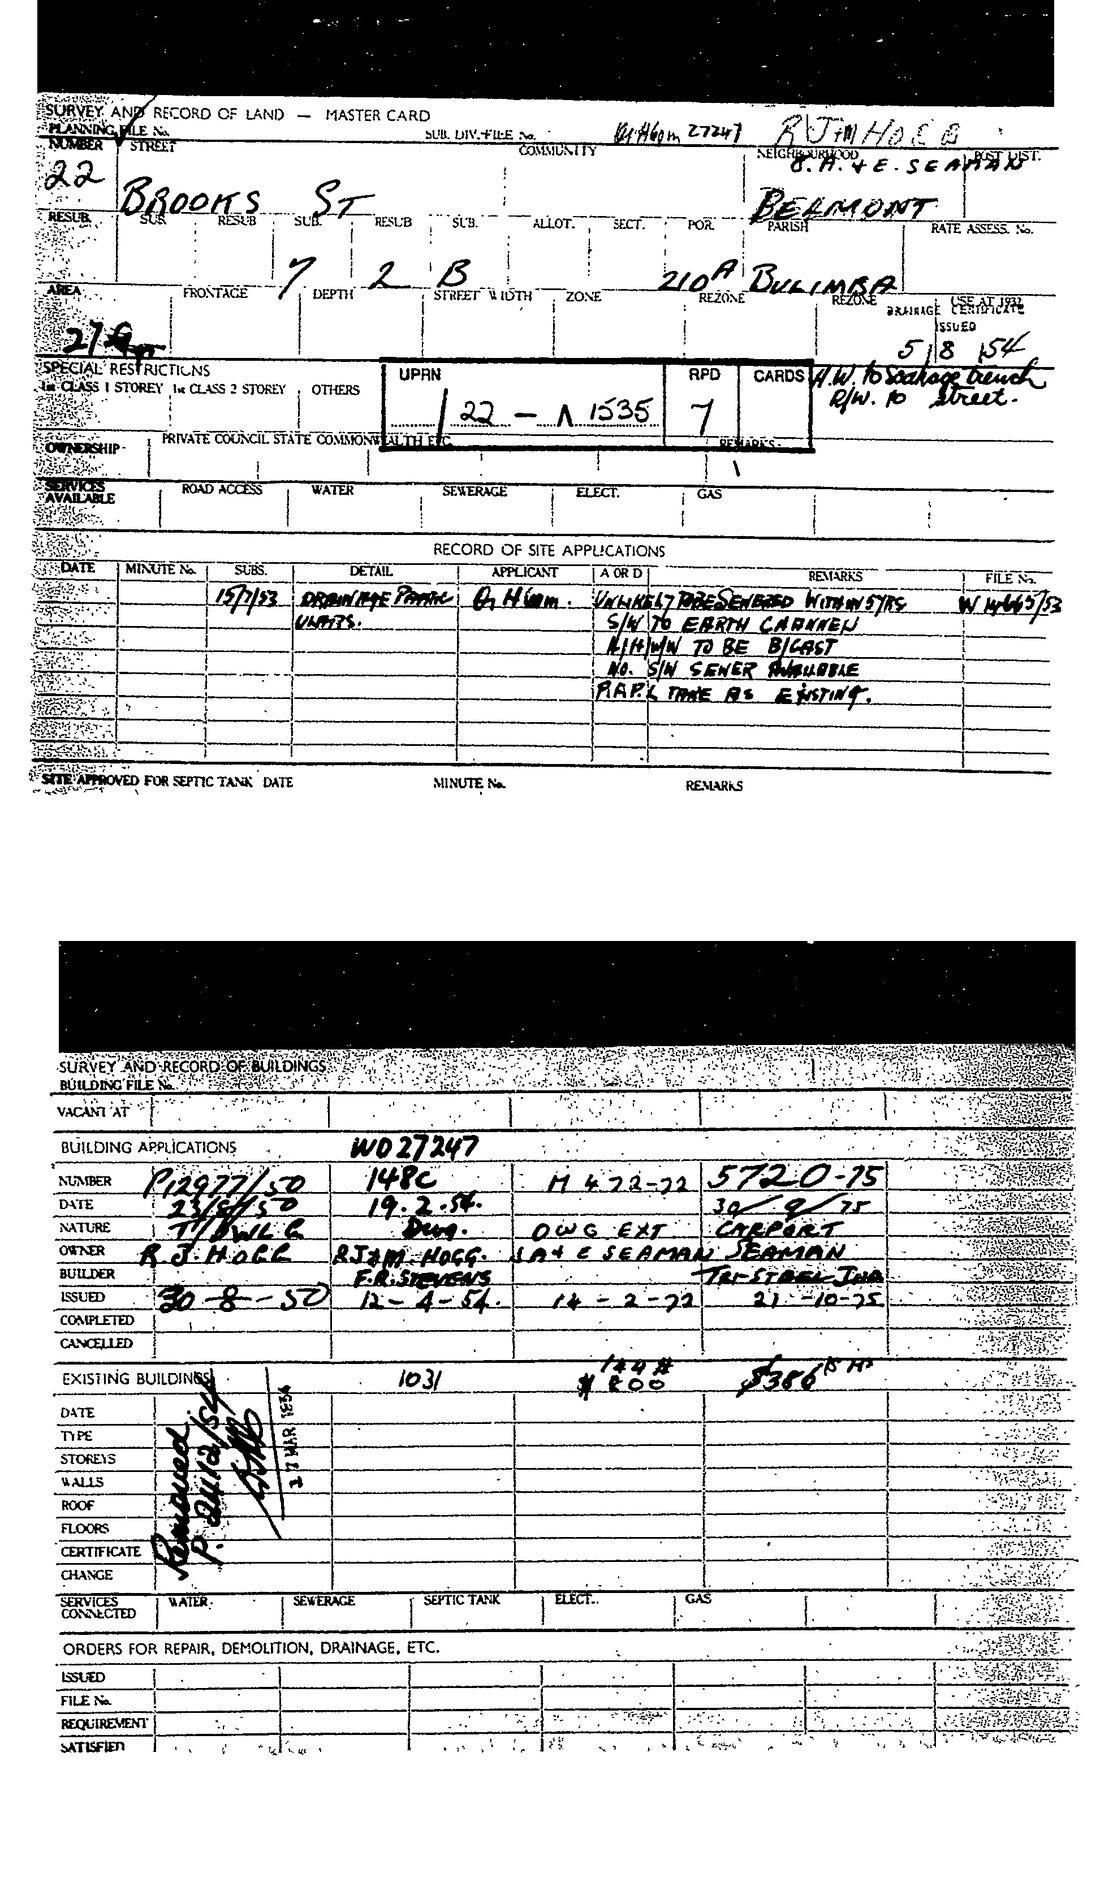 SURVEY AND RECORD OF LAND — MASTER CARD
PLANNING FILE No. SUB. DIV. FILE No. 27247 R J + M HOGG
NUMBER STREET COMMUNITY NEIGHBOURHOOD POST DIST.
& E. SEAMAN
22 BROOKS ST BELMONT
RESUB. SUB. RESUB SUB. RESUB SUB. ALLOT. SECT. POR. PARISH RATE ASSESS. No.
7 2 B 210A BULIMBA
AREA FRONTAGE DEPTH STREET WIDTH ZONE REZONE REZONE USE AT 1937
DRAINAGE CERTIFICATE
ISSUED
27
5/8/54
SPECIAL RESTRICTIONS
1st CLASS 1 STOREY 1st CLASS 2 STOREY OTHERS
UPRN RPD CARDS
H.W. to Soakage trench
R/W. to street.
/22 - A 1535 7
OWNERSHIP PRIVATE COUNCIL STATE COMMONWEALTH ETC. REMARKS
SERVICES AVAILABLE ROAD ACCESS WATER SEWERAGE ELECT. GAS
RECORD OF SITE APPLICATIONS
DATE MINUTE No. SUBS. DETAIL APPLICANT A OR D REMARKS FILE No.
15/7/53 DRAINAGE UNLIKELY TO BE SEWERED WITHIN 5 YRS W 14665/53
S/W TO EARTH CHANNEL
TO BE B/CAST
NO. S/W SEWER AVAILABLE
TAKE AS EXISTING.
SITE APPROVED FOR SEPTIC TANK DATE MINUTE No. REMARKS
SURVEY AND RECORD OF BUILDINGS
BUILDING FILE No.
VACANT AT
BUILDING APPLICATIONS WD27247
NUMBER P12977/50 148C M 472-72 5720-75
DATE 23/8/50 19.2.54. 30/9/75
NATURE T/DWLG Dwg. DWG EXT CARPORT
OWNER R. J. HOGG RJ&M. HOGG. A & E SEAMAN SEAMAN
BUILDER F.R. STEVENS TRI-STEEL IND
ISSUED 30-8-50 12-4-54. 14-2-72 21-10-75
COMPLETED
CANCELLED
EXISTING BUILDINGS 1031 144 # $800 $386
DATE
TYPE
STOREYS
WALLS
ROOF
FLOORS
CERTIFICATE
CHANGE
Removed
P. 2412/54
17 MAR 1954
SERVICES CONNECTED WATER SEWERAGE SEPTIC TANK ELECT. GAS
ORDERS FOR REPAIR, DEMOLITION, DRAINAGE, ETC.
ISSUED
FILE No.
REQUIREMENT
SATISFIED